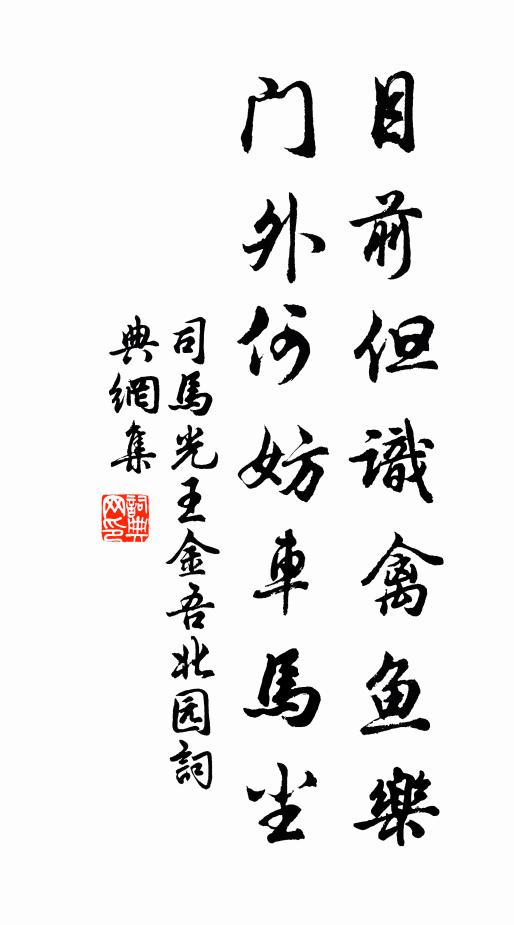 目前但識禽鱼樂
门外何妨車馬尘
司馬光王金吾北园詞
典網集
詞典
网印